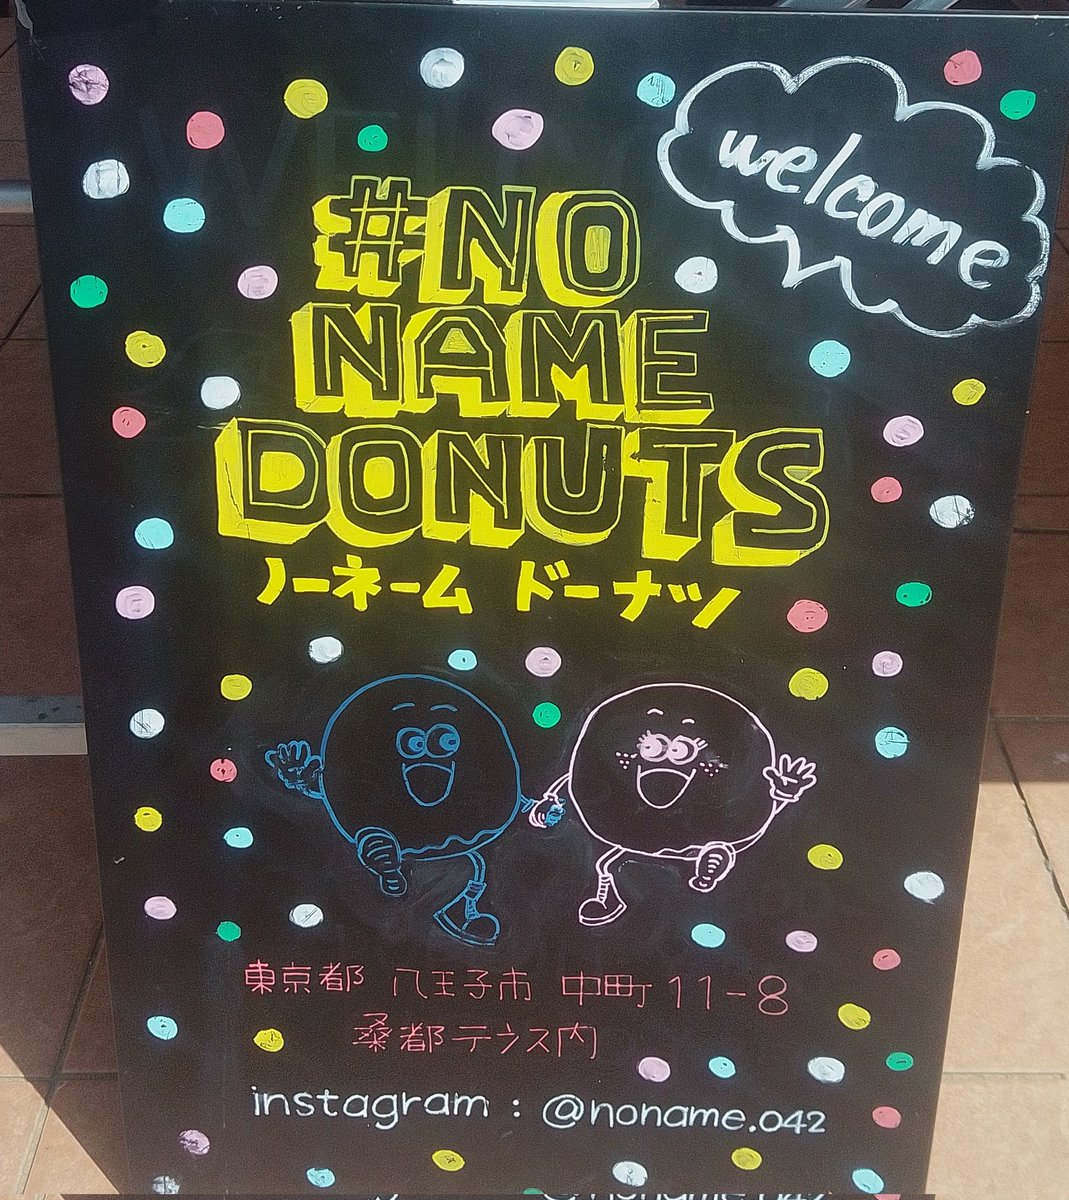 welcome
#NO
NAME
DONUTS
ノーネーム ドーナツ
東京都 八王子市 中町 11-8
桑都テラス内
instagram : @noname.042